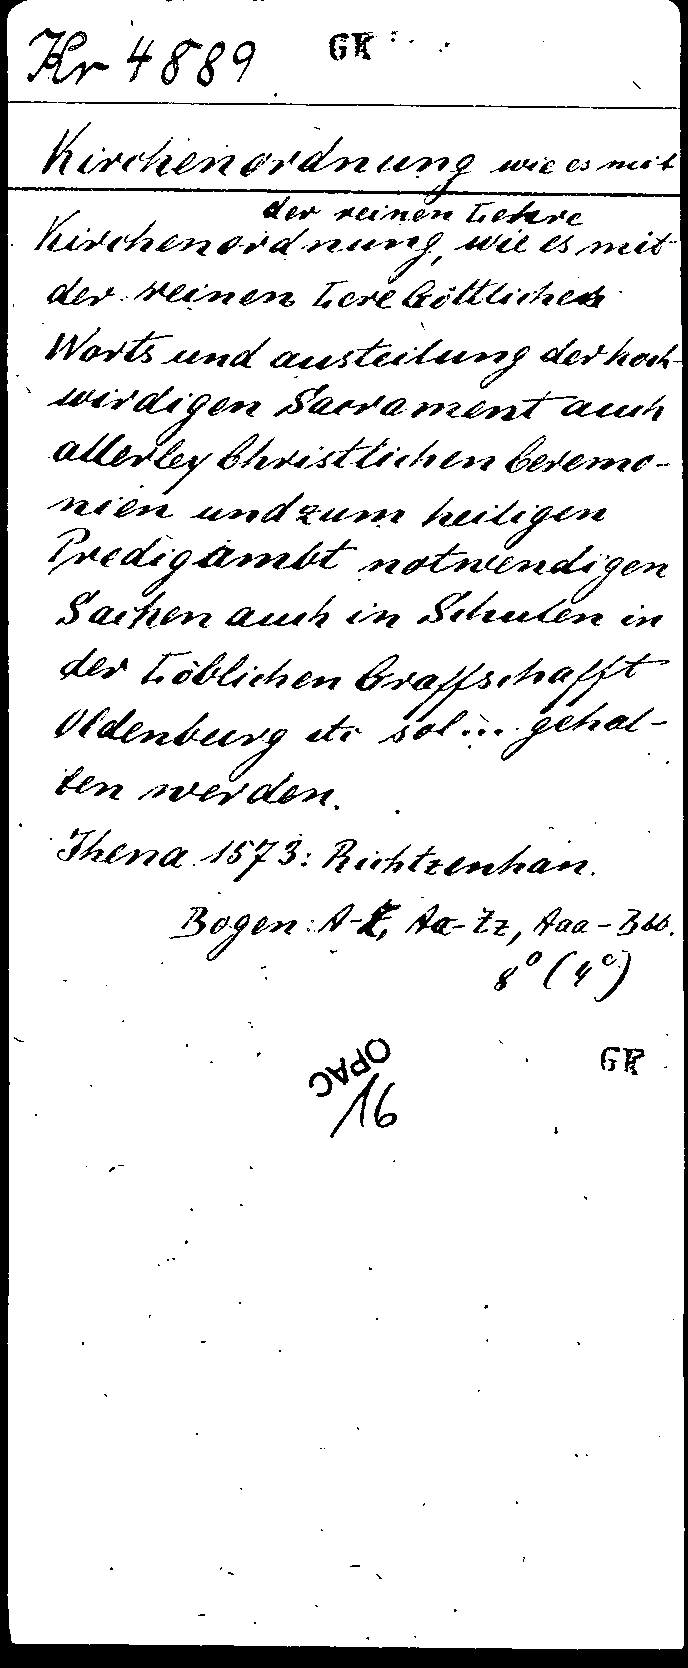 Kr 4889 GK
Kirchenordnung wie es mit
der reinen Lehre
Kirchenordnung, wie es mit
der reinen Lere Göttliches
Worts und austeilung der hoch-
wirdigen Sacrament auch
allerley Christlichen Ceremo-
nien und zum heiligen
Predigambt notwendigen
Sachen auch in Schulen in
der Löblichen Graffschafft
Oldenburg etc sol... gehal-
ten werden.
Jhena 1573: Richtzenhan.
Bogen: A-Z, Aa-Zz, Aaa-Bbb.
8° (4°)
GK
OPAC
16